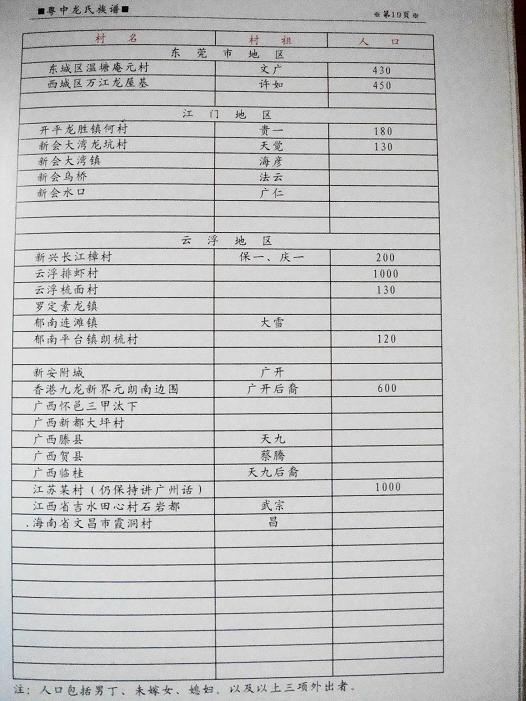 ■粤中龙氏族谱■ ※第19页※
村名 村祖 人口
东莞市地区
东城区温塘庵元村 文广 430
西城区万江龙屋基 许如 450
江门地区
开平龙胜镇何村 贵一 180
新会大湾龙坑村 天觉 130
新会大湾镇 海彦
新会乌桥 法云
新会水口 广仁
云浮地区
新兴长江樟村 保一、庆一 200
云浮排虾村 1000
云浮梳面村 130
罗定素龙镇
郁南连滩镇 大雪
郁南平台镇朗梳村 120
新安附城 广开
香港九龙新界元朗南边围 广开后裔 600
广西怀邑三甲汰下
广西新都大坪村
广西滕县 天九
广西贺县 蔡腾
广西临桂 天九后裔
江苏某村（仍保持讲广州话） 1000
江西省吉水田心村石岩都 武宗
.海南省文昌市霞洞村 昌
注：人口包括男丁、未嫁女、媳妇，以及以上三项外出者。